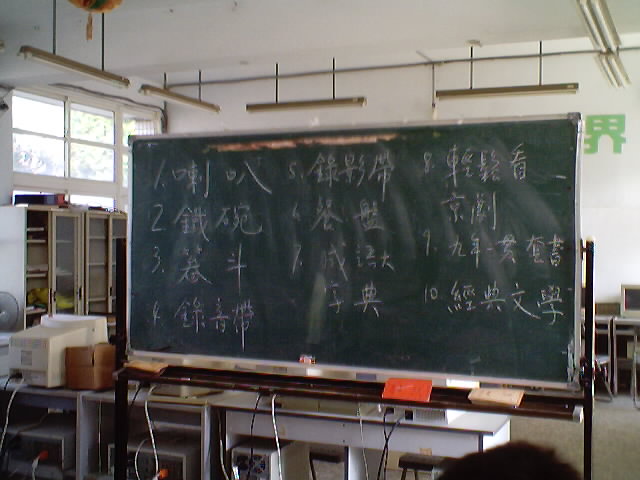 1. 喇叭
2. 鐵碗
3. 畚斗
4. 錄音帶
5. 錄影帶
6. 餐盤
7. 成語大
字典
8. 輕鬆看
京劇
9. 九年一貫套書
10. 經典文學
界